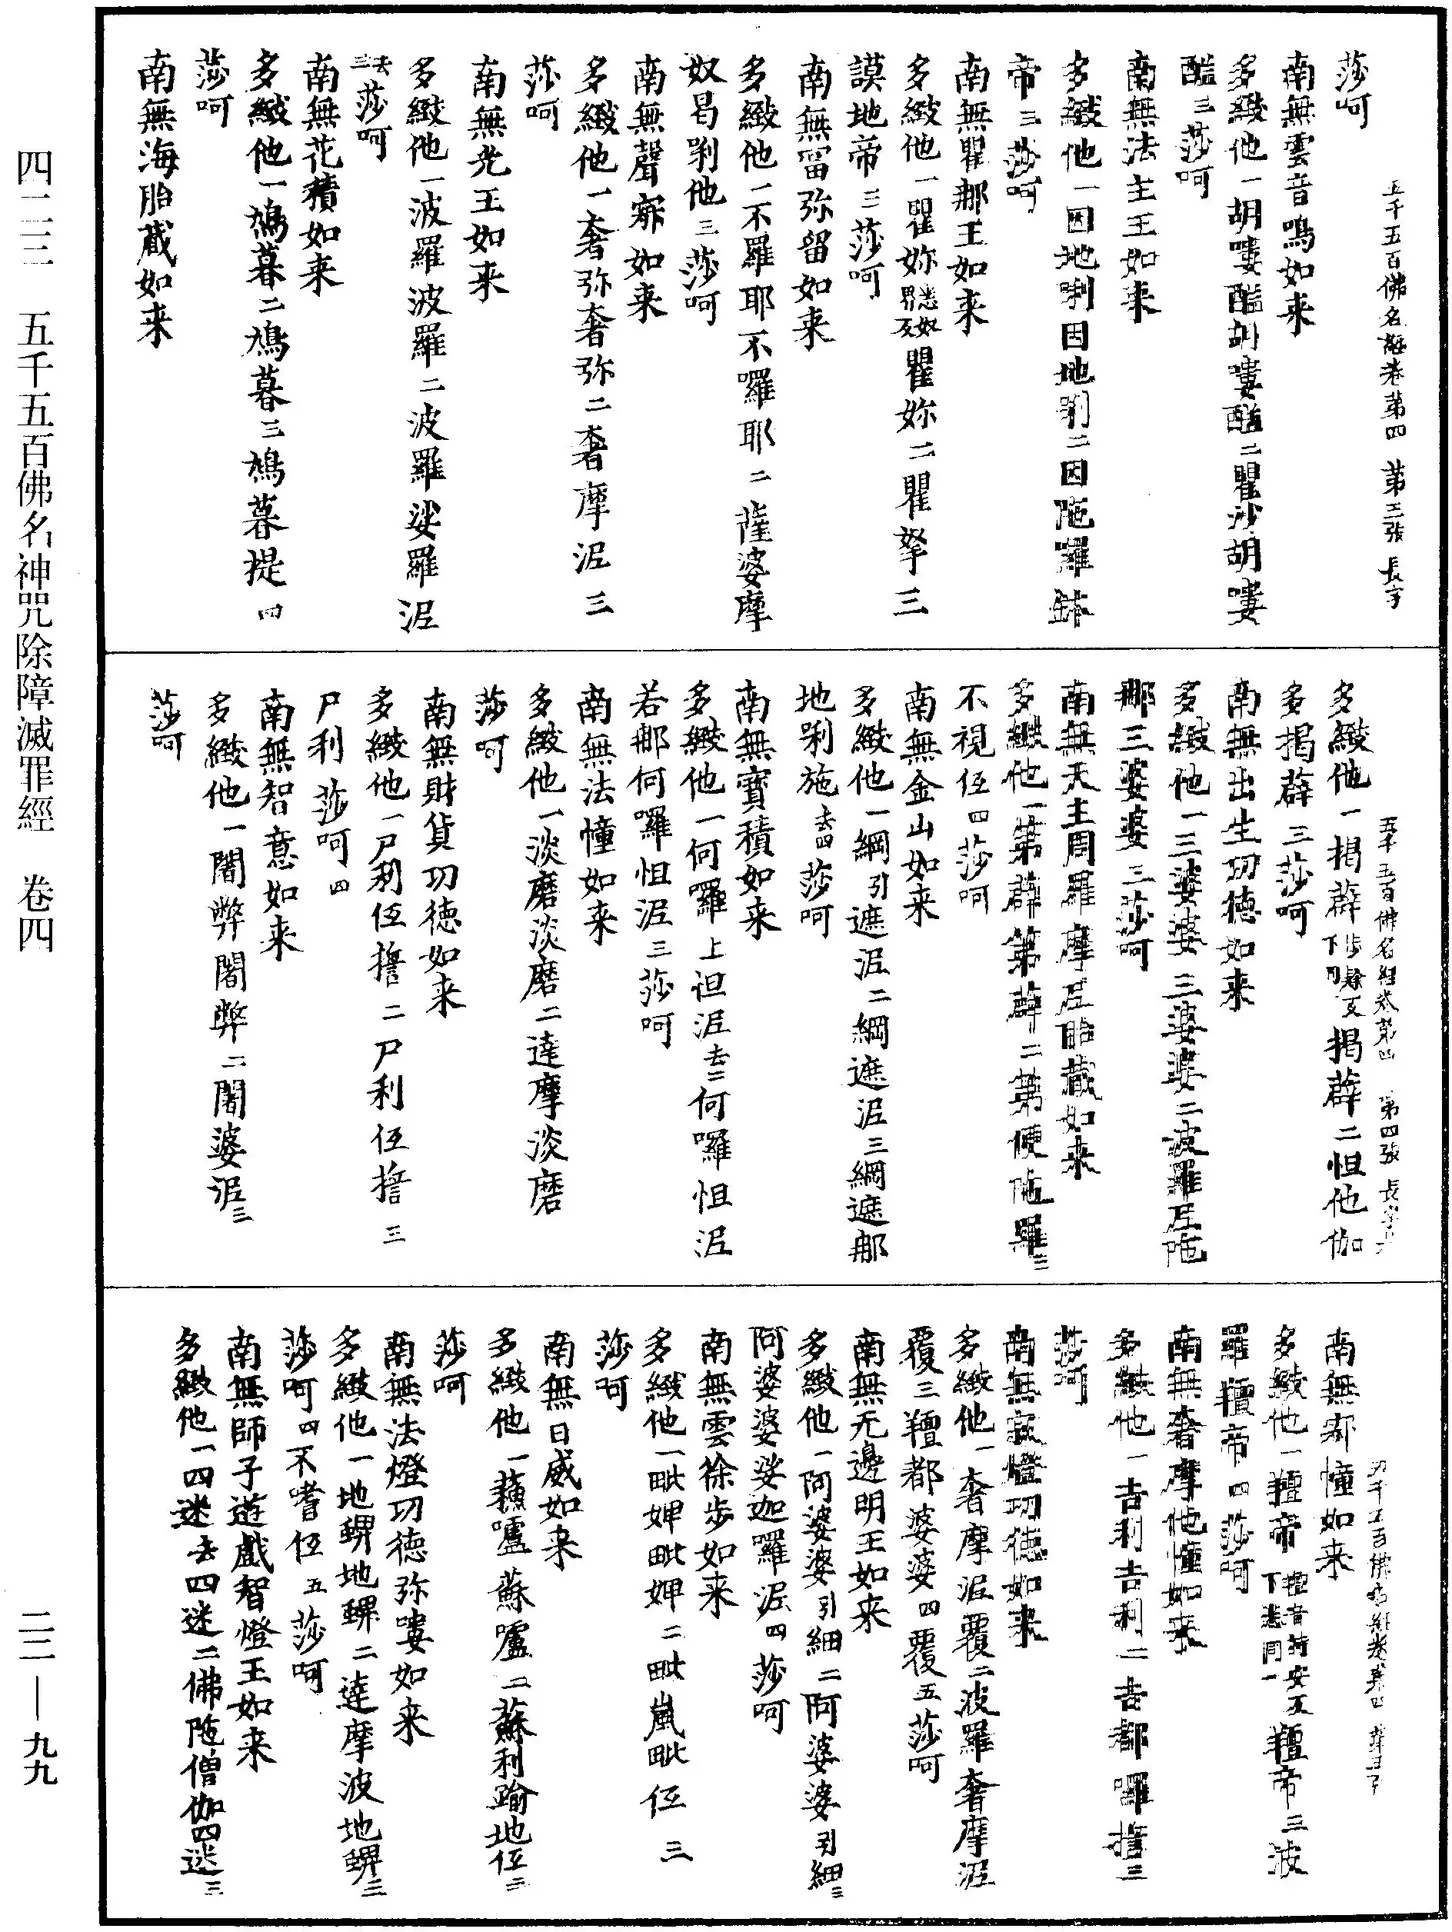 莎呵
南無雲音鳴如来
多緻他一胡嘍醯胡嘍醯二瞿沙胡嘍
醯三莎呵
南無法主王如来
多緻他一因地唎因地唎二因陁羅鉢
帝三莎呵
南無瞿那王如来
多緻他一瞿妳瞿妳二瞿拏三
謨地帝三莎呵
南無留弥留如来
多緻他一不羅耶不囉耶二薩婆摩
奴曷剌他三莎呵
南無聲寂如来
多緻他一奢弥奢弥二奢摩泥三
莎呵
南無光王如来
多緻他一波羅波羅二波羅娑羅泥
去三莎呵
南無花積如来
多緻他一鳩暮二鳩暮三鳩暮提四
莎呵
南無海胎藏如来
五千五百佛名經卷第四 第三張 長字
多緻他一揭薜揭薜二怛他伽
多揭薜三莎呵
南無出生功德如来
多緻他一三婆婆三婆婆二波羅底陁
那三婆婆三莎呵
南無天主周羅摩尼胎藏如来
多緻他一第薜第薜二第便陁羅三
不視伍四莎呵
南無金山如来
多緻他一綱引遮泥二綱遮泥三綱遮那
地唎施去四莎呵
南無寶積如来
多緻他一何羅上怛泥去二何囉怛泥
若那何囉怛泥三莎呵
南無法憧如来
多緻他一淡磨淡磨二達摩淡磨
莎呵
南無財貨功德如来
多緻他一尸利伍擔二尸利伍擔三
尸利莎呵四
南無智意如来
多緻他一闍弊闍弊二闍婆泥三
莎呵
五千五百佛名經卷第四 第四張 長字
南無寂憧如来
多緻他一羶帝羶帝三波
羅羶帝四莎呵
南無奢摩他憧如来
多緻他一吉利吉利二吉都囉擔三
莎呵
南無寂燈功德如来
多緻他一奢摩泥覆二波羅奢摩泥
覆三羶都婆婆四覆五莎呵
南無无邊明王如来
多緻他一阿婆婆引細二阿婆婆引細三
阿婆婆娑迦羅泥四莎呵
南無雲徐步如来
多緻他一毗婢毗婢二毗嵐毗伍三
莎呵
南無日威如来
多緻他一蘓嚧蘇嚧二蘇利踰地伍三
莎呵
南無法燈功德弥嘍如来
多緻他一地鞞地鞞二達摩波地鞞三
莎呵四不嗜伍五莎呵
南無師子遊戲智燈王如来
多緻他一四迷去四迷二佛陁僧伽四迷三
四二三 五千五百佛名神咒除障滅罪經 卷四
二二—九九